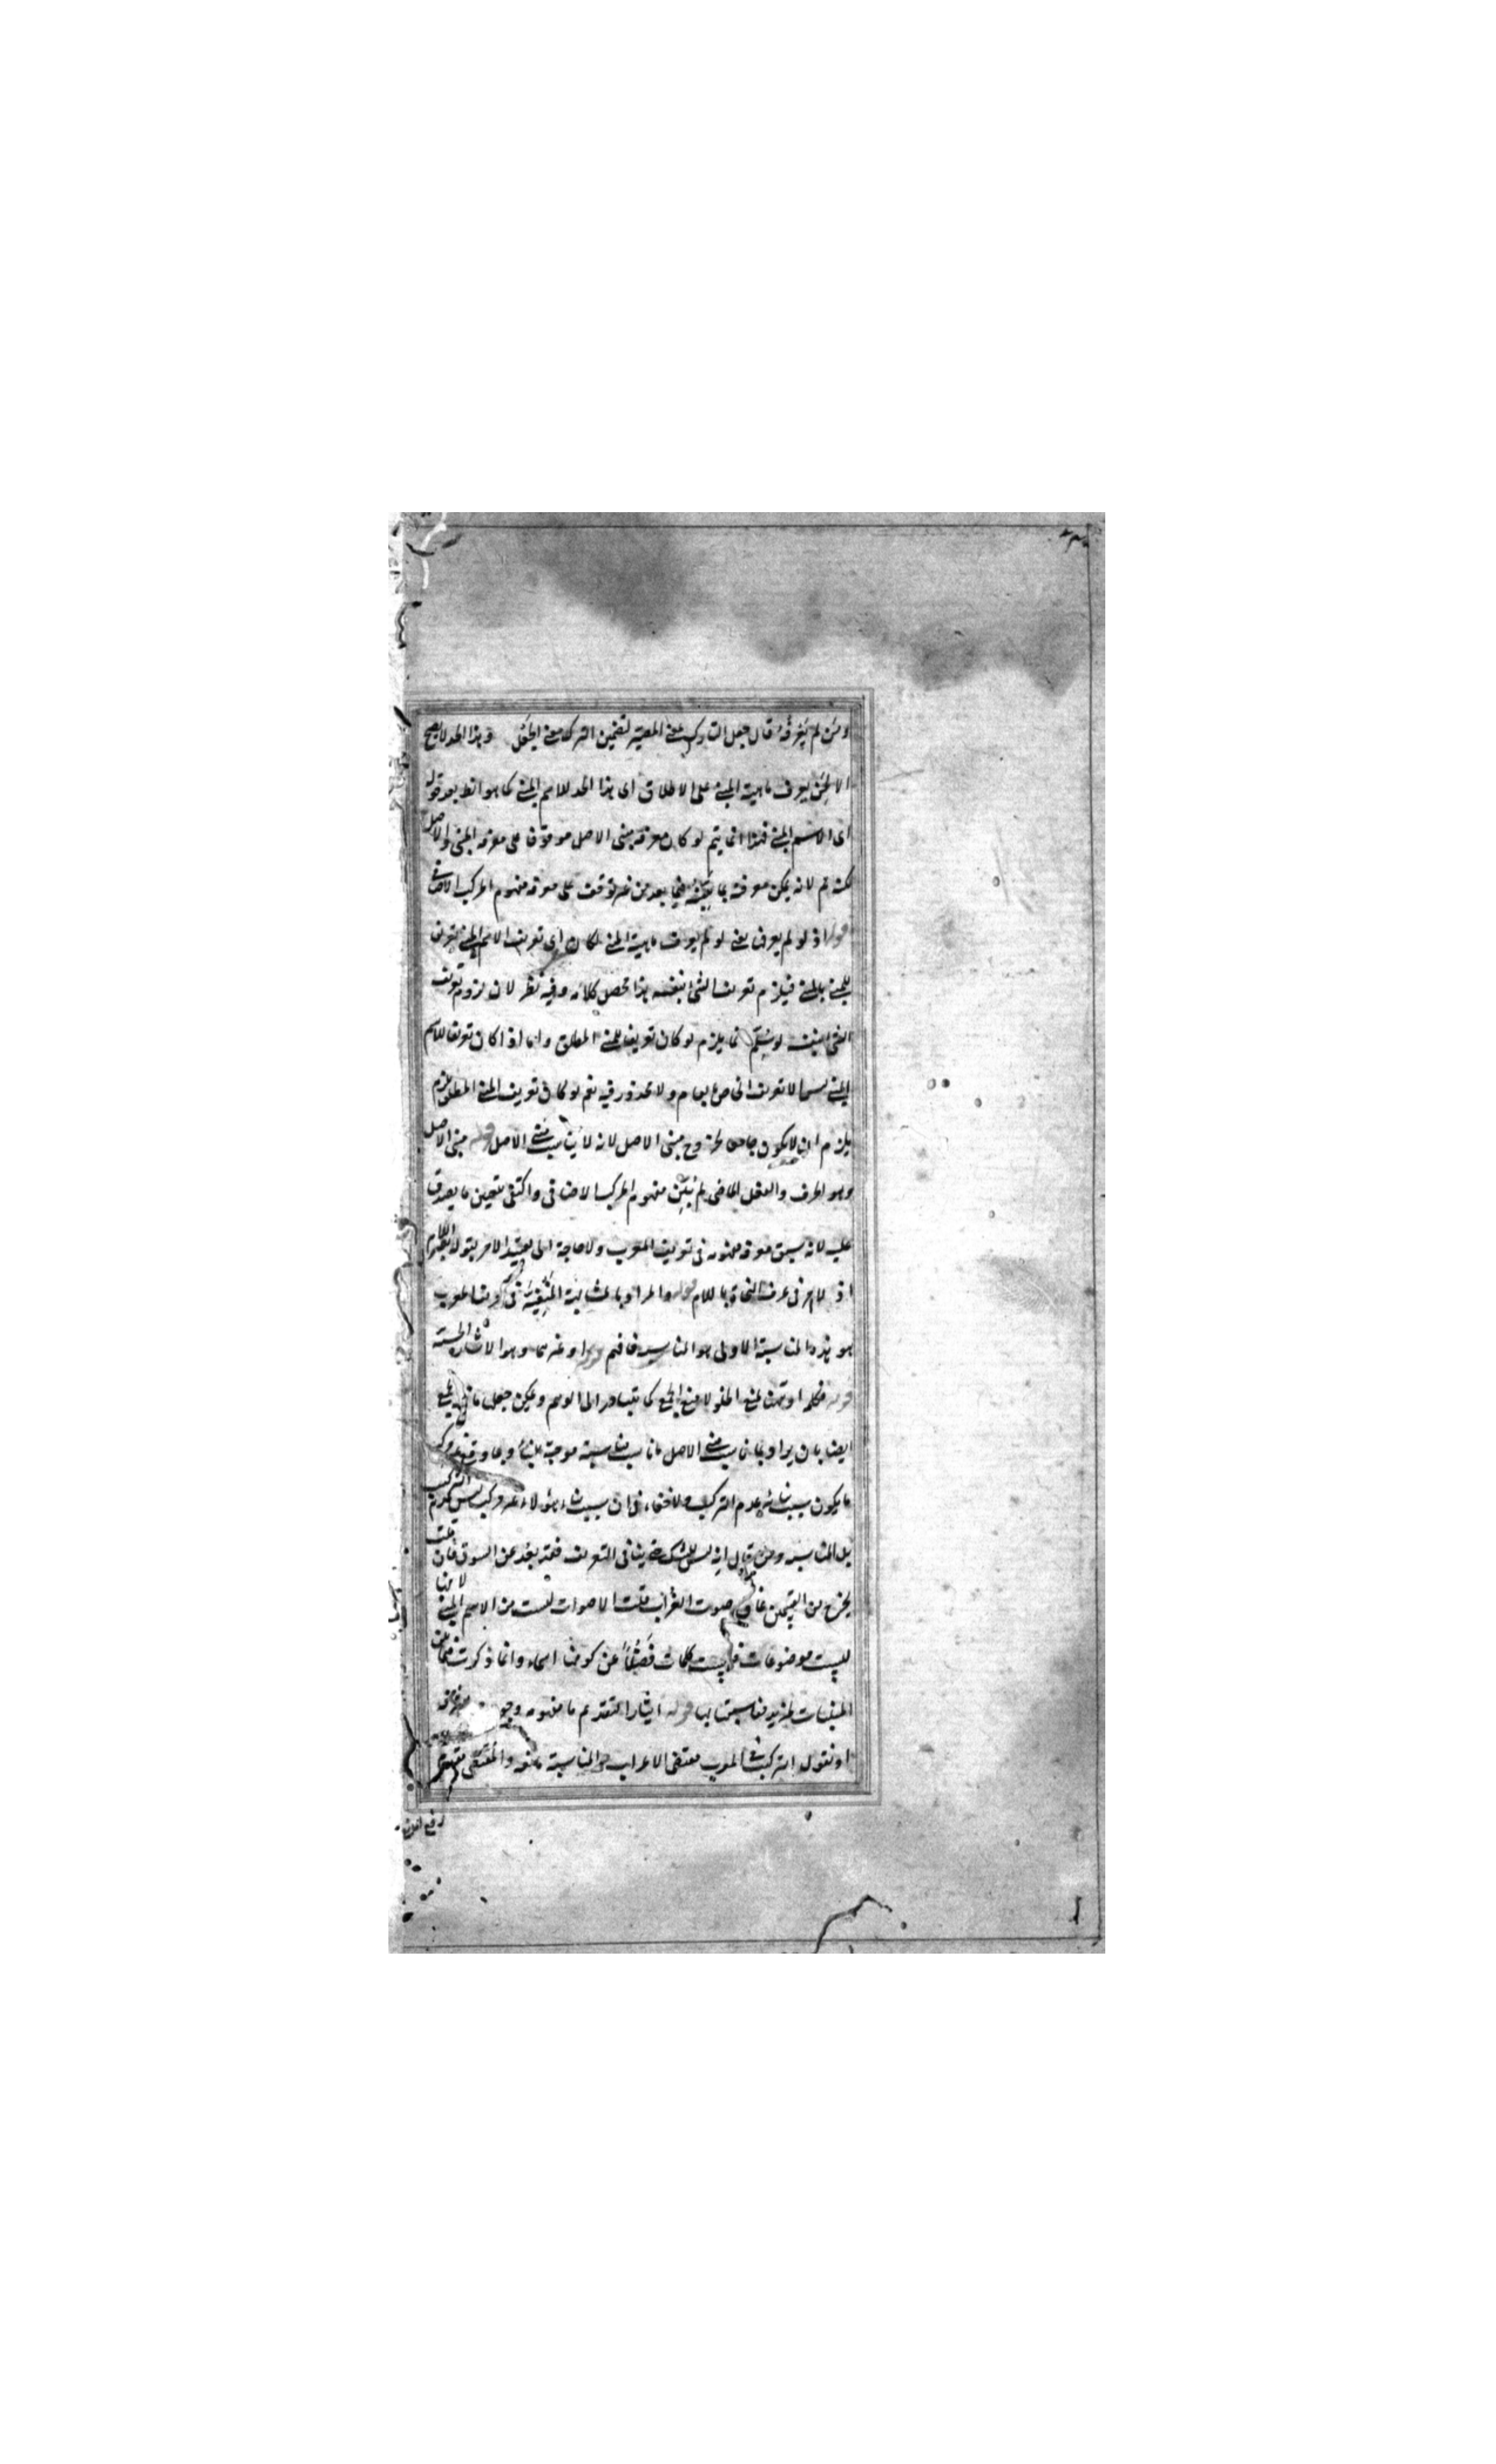 ومن لم يعرفه قال جعل التارك معنى المعية لتضمين الترك معنى الجعل وهذا الحد لا يصح
الا لمن يعرف ماهية المبنى على الاطلاق اى هذا الحد للاسم المبنى كما هو الظ بعد قوله
اى الاسم المبنى فهذا انما يتم لو كان معرفة مبنى الاصل موقوفا على معرفة المبنى والاصل
لانه يمكن معرفة بما فيما بعد من غير توقف على معرفة مفهوم المركب الاضافى
قوله اذ لو لم يعرف يعنى لو لم يعرف ماهية المبنى لكان اى تعريف الاسم المبنى تعريف
للمبنى بالمبنى فيلزم تعريف الشئ بنفسه هذا محصل كلامه وفيه نظر لان لزوم تعريف
الشئ بنفسه لو سلم انما يلزم لو كان تعريفا للمبنى المطلق واما اذا كان تعريفا للاسم
المبنى الا تعريف الخاص بعام ولا محذور فيه نعم لو كان تعريف المبنى المطلق يلزم
يلزم ان لا يكون جامعا لخروج مبنى الاصل لانه لا يناسب مبنى الاصل قوله مبنى الاصل
وهو الحرف والفعل الماضى لم يبين مفهوم المركب الاضافى واكتفى بتعيين ما يصدق
عليه لانه سبق معرفة مفهومه فى تعريف المعرب ولا حاجة الى تقييد الامر بقوله بغير اللام
اذ لا امر فى عرف النحاة باللام قوله والمراد بالمشابهة المنفية فى تعريف المعرب
هو هذه المناسبة الاولى هو المناسبة فافهم قوله او غيرهما وهو الاشارة الحسية
قوله فكلمة او لمنع الخلو لا منع الجمع كما يتبادر الى الوهم ويمكن جعل
ايضا بان يراد بما ناسب مبنى الاصل ما ناسب مناسبة موجبة للبناء وبما وقع غير مركب
ما يكون سبب بنائه عدم التركيب ولا خفاء فى ان سبب بناء هؤلاء غير مركب ليس عدم التركيب
بل المناسبة ومن قال انه ليس للشك حتى ينافى التعريف فقد بعد عن السوق فان قلت
يخرج من القسمين غاق صوت الغراب قلت الاصوات ليست من الاسم المبنى لانها
ليست موضوعات فليست كلمات فضلا عن كونها اسماء وانما ذكرت فى
المبنيات لمزيد مناسبتها بها قوله ايثارا لتقديم ما مفهومه
او نقول التركيب فى المعرب مقتضى الاعراب والمناسبة مانعه والمقتضى مقدم